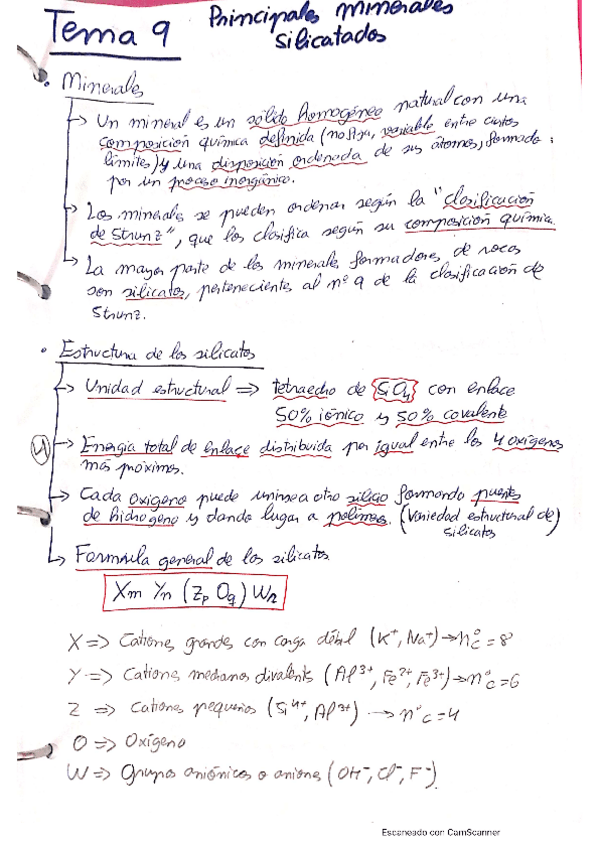 Tema 9 Principales minerales
silicatados
• Minerales
→ Un mineral es un sólido homogéneo natural con una
composición química definida (no fija, variable entre ciertos
límites) y una disposición ordenada de sus átomos, formado
por un proceso inorgánico.
→ Los minerales se pueden ordenar según la "clasificación
de Strunz", que los clasifica según su composición química.
→ La mayor parte de los minerales formadores de rocas
son silicatos, pertenecientes al nº 9 de la clasificación de
Strunz.
• Estructura de los silicatos
→ Unidad estructural ⇒ tetraedro de SiO4 con enlace
50% iónico y 50% covalente
4 → Energía total de enlace distribuida por igual entre los 4 oxígenos
más próximos.
→ Cada oxígeno puede unirse a otro silicio formando puentes
de hidrógeno y dando lugar a polímeros. (Variedad estructural de)
silicatos
→ Formula general de los silicatos
Xm Yn (Zp Oq) Wr
X ⇒ Cationes grandes con carga débil (K⁺, Na⁺) → nºc = 8
Y ⇒ Cationes medianos divalentes (Al³⁺, Fe²⁺, Fe³⁺) → nºc = 6
Z ⇒ Cationes pequeños (Si⁴⁺, Al³⁺) → nºc = 4
O ⇒ Oxígeno
W ⇒ Grupos aniónicos o aniones (OH⁻, Cl⁻, F⁻)
Escaneado con CamScanner